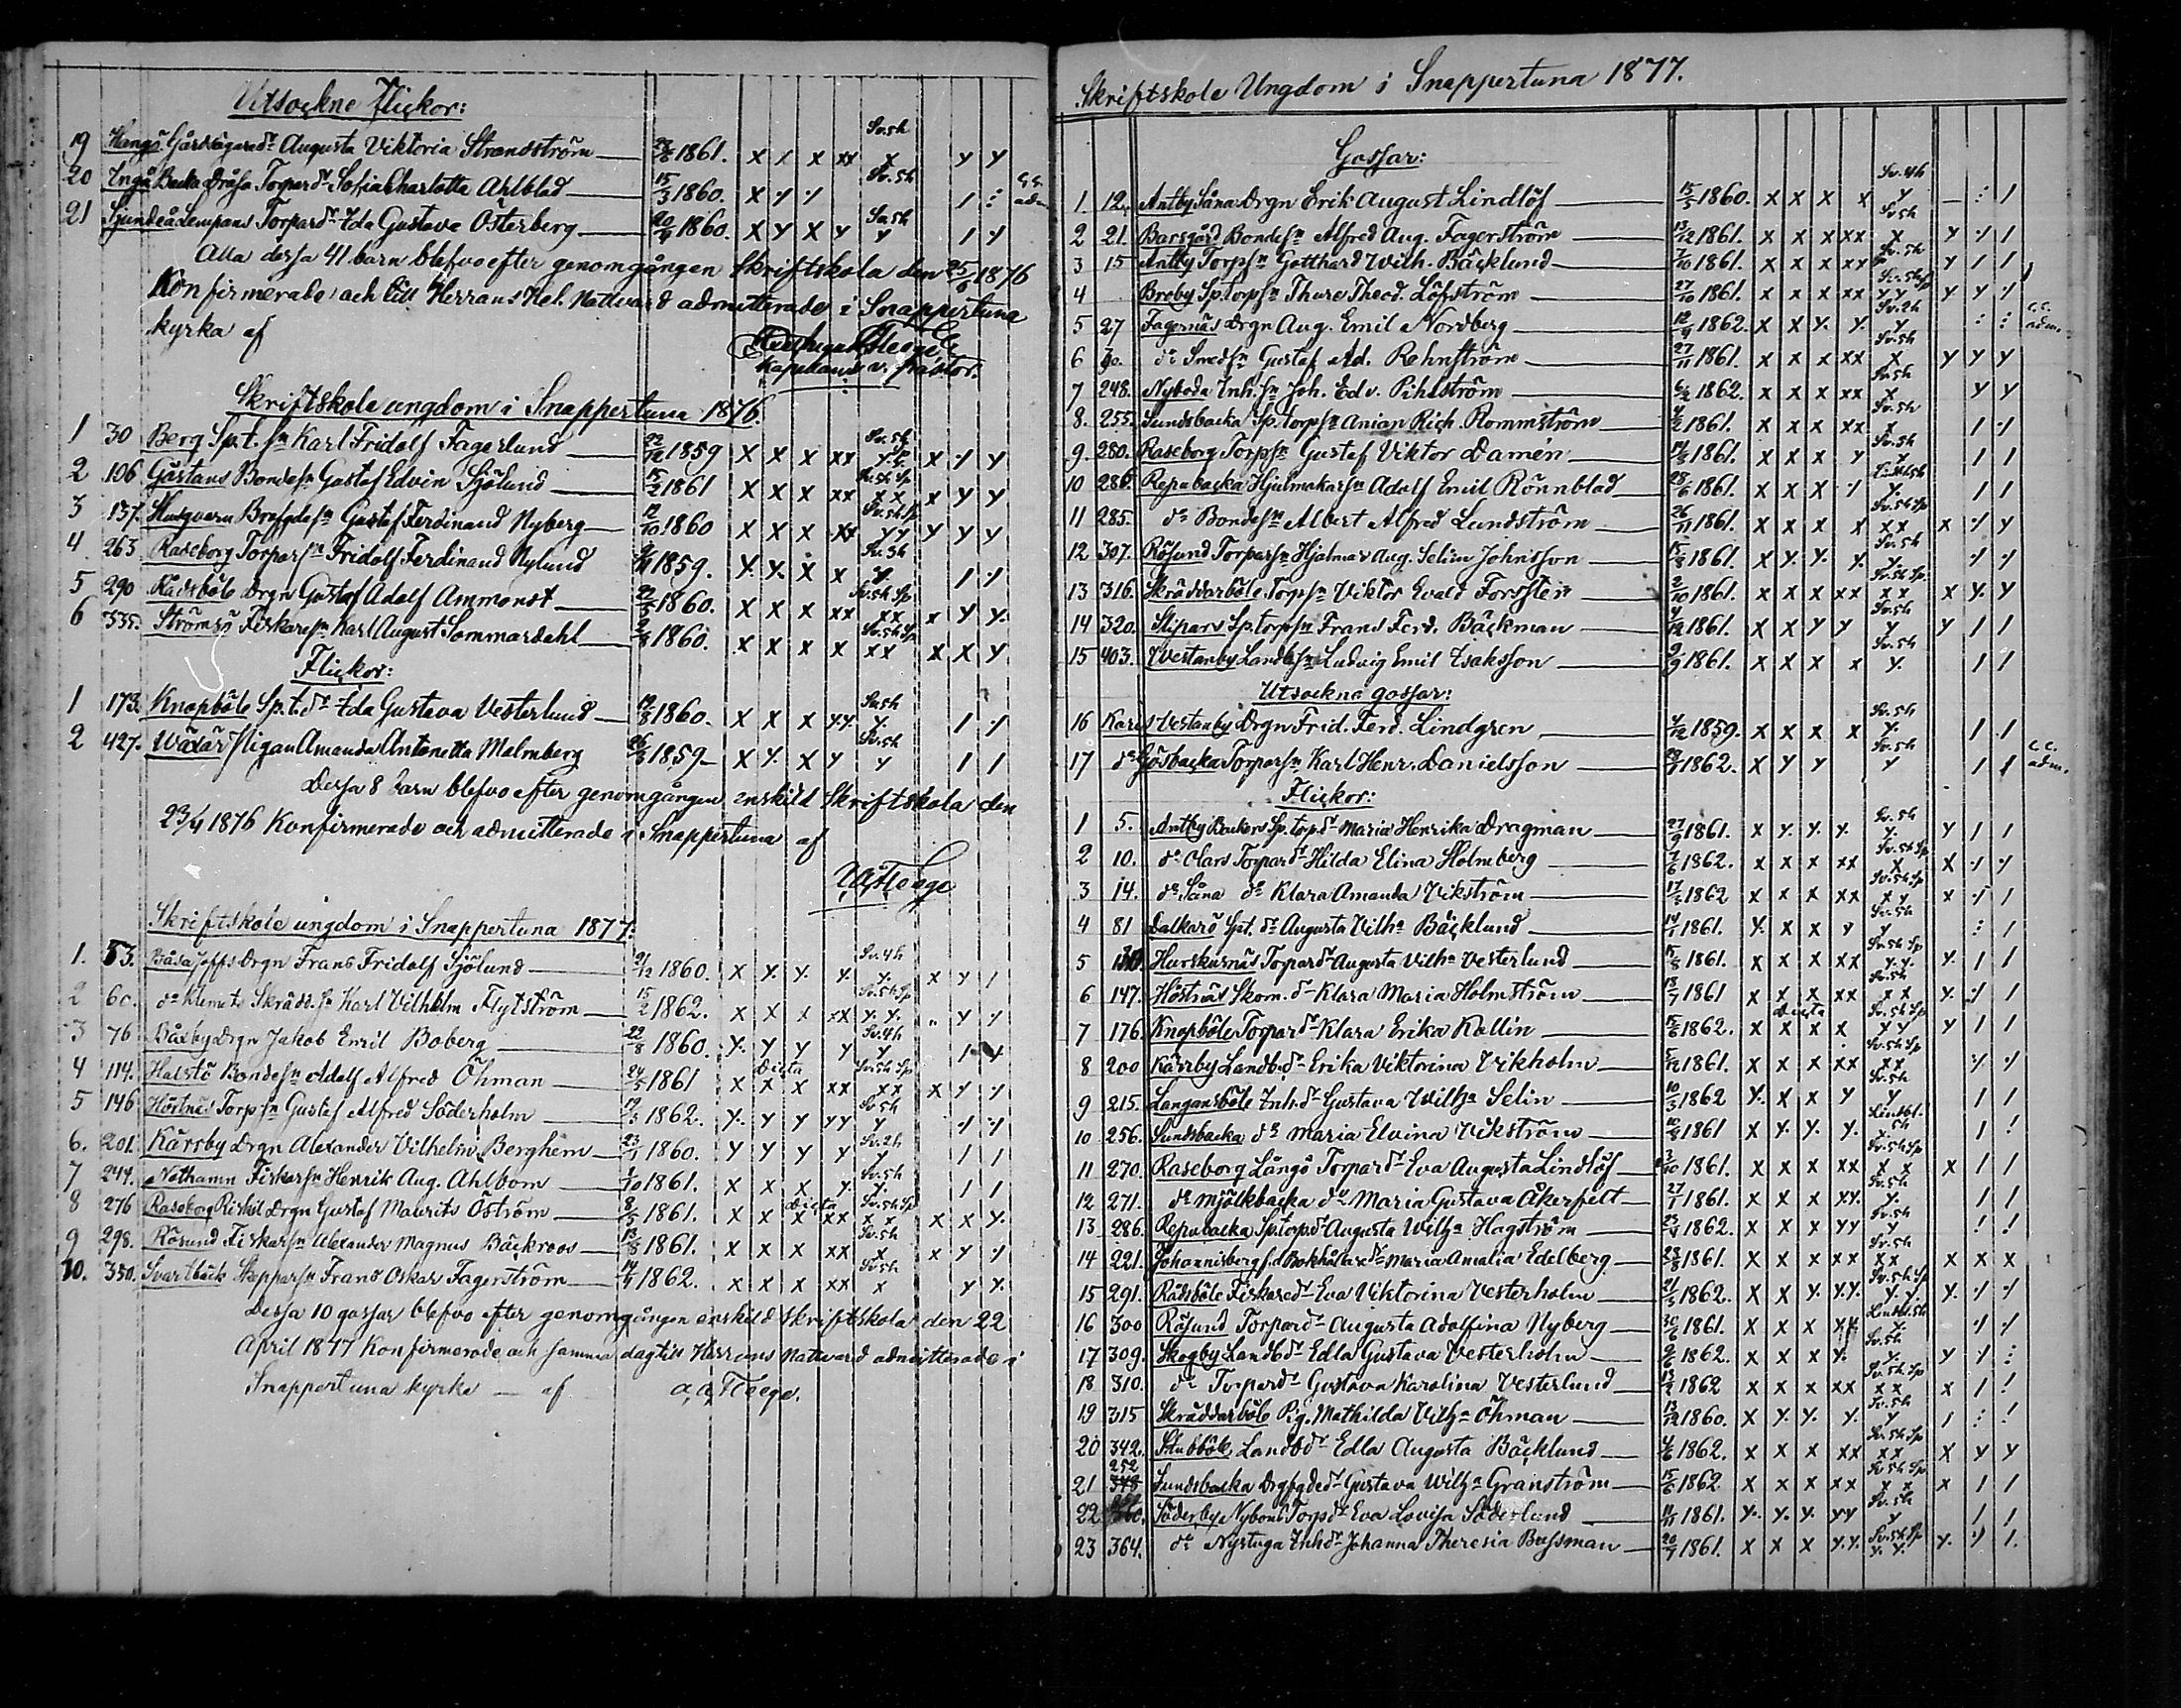 Utsockne Flickor:
19 Hangö Gårdsägared:r Augusta Viktoria Strandström 1861. x / x xx Sv.5h x y y
20 Ingå Backa Dråsa Torpard:r Sofia Charlotta Ahlblad 15/3 1860. x y y Sv.5h / : c.c. adm.
21 Sjundeå Lempans Torpard:r Ida Gustava Österberg 20/9 1860. x y x y Sv.5h y / y
Alla dessa 41 barn blefvo efter genomgången Skriftskola den 25/6 1876
Konfirmerade och till Herrans Hel. Nattvard admitterade i Snappertuna
kyrka af
Kapellan v. Pastor.
Skriftskole ungdom i Snappertuna 1876.
1 30 Berg Sp.t.s:n Karl Fridolf Fagerlund 1859 x x x xx x y y
2 106 Gåstans Bondes:n Gustaf Edvin Sjölund 15/2 1861 x x x xx Sv.5h Sp x x x y y
3 137. Husgvarn Brofgdes:n Gustaf Ferdinand Nyberg 12/10 1860 x x x xx Sv.5h Sp y y y y y
4 263 Raseborg Torpars:n Fridolf Ferdinand Nylund 1859. y. y. x x Sv.3h y. / y
5 290 Rådsböle Drgn Gustaf Adolf Ammonst 22/5 1860. x x x xx Sv.5h Sp. x x x y y.
6 335. Strömsö Fiskares:n Karl August Sommardahl 1860. x x x x Sv.5h Sp x x x x y
Flickor:
1 173. Knapböle Sp.t.d:r Ida Gustava Vesterlund 19/8 1860. x x x y.y. Sv.5h y. / y
2 427. Wäxär Pigan Amanda Antonetta Malmberg 26/3 1859 x y. x y Sv.5h y / /
Dessa 8 barn blefvo efter genomgången enskild Skriftskola den
23/4 1876 Konfirmerade och admitterade i Snappertuna af
Skriftskole ungdom i Snappertuna 1877.
1. 53. Båsa Joffs Drgn Frans Fridolf Sjölund 9/12 1860. x y. y. y. Sv.4h y. x y /
2 60. d:o Klemets Skrädd.s:n Karl Vilhelm Flytström 15/2 1862. x x x xx Sv.5h Sp y. y. „ y y
3 76 Båxby Drgn Jakob Emil Boberg 22/8 1860. y. y y y Sv.4h y / y
4 114. Halstö Bondes:n Adolf Alfred Öhman 24/5 1861 x x x xx Sv.5h Sp x x x y y
5 146 Höstnäs Torps:n Gustaf Alfred Söderholm 19/3 1862. y. y y yy Sv.5h y y y
6. 201. Kärrby Drgn Alexander Vilhelm Berghem 23/1 1860. y y y y Sv.2h y / /
7 244. Nothamn Fiskars:n Henrik Aug. Ahlbom 1/10 1861. x x x y. Sv.5h y. / /
8 276 Raseborg Riskil Drgn Gustaf Maurits Öström 8/5 1861. x x x xx Sv.5h Sp x x x x y.
9 298. Rösund Fiskars:n Alexander Magnus Bäckroos 13/8 1861. x x x xx Sv.5h x x y y
10. 350. Svartbäck Skeppars:n Frans Oskar Fagerström 14/4 1862. x x x xx Sv.5h x y y.
Dessa 10 gossar blefvo efter genomgången enskild Skriftskola den 22
April 1877 Konfirmerade och samma dag till Herrans Nattvard admitterade i
Snappertuna kyrka — af
Skriftskole Ungdom i Snappertuna 1877.
Gossar:
1. 12. Antby Såna Drgn Erik August Lindlöf 15/5 1860. x x x x Sv.4h y — : /
2 21. Barsgård Bondes:n Alfred Aug. Fagerström 13/12 1861. x x x xx Sv.5h x y y /
3 15 Antby Torps:n Gotthard Wilh. Bäcklund 7/10 1861. x x x xx Sv.5h y / /
4 Broby Sp.torps:n Thure Theod. Löfström 27/10 1861. x x x xx Sv.5h Sp y y y y y
5 27 Fagernäs Drgn Aug. Emil Nordberg 12/9 1862. x x y. y. Sv.2h y : : c.c. adm.
6 30. d:o Smeds:n Gustaf Ad. Rehnström 27/11 1861. x x x xx Sv.5h x y y y
7 248. Nyboda Inh.s:n Joh. Edv. Pihlström 1862. x x x xx Sv.5h x y y
8. 255. Sundsbacka Sp.torps:n Anian Rich. Rommström 1861. x x x xx Sv.5h x / y
9. 280. Raseborg Torps:n Gustaf Viktor Damén 1861. x x x y Sv.5h y / /
10 286. Repubacka Hjulmakars:n Adolf Emil Rönnblad 28/6 1861. x x x / y. / /
11 285. d:o Bondes:n Albert Alfred Lundström 26/11 1861. x x x x Sv.5h Sp x x x y y
12 307. Rösund Torpars:n Hjalmar Aug. Selim Johnsson 15/8 1861. x y. y. y. Sv.5h y. y y
13 316. Skräddarböle Torps:n Viktor Evald Forsstén 2/10 1861. x x x xx Sv.5h Sp. x x x y. y
14 320. Slipars Sp.torps:n Frans Ferd. Bäckman 4/12 1861. x x y y Sv.5h y y / /
15 403. Westanby Landbs:n Ludvig Emil Isaksson 9/9 1861. x x x x Sv.5h y. / /
Utsockne gossar:
16 Karis Vestanby Drgn Frid. Ferd. Lindgren 4/12 1859. x x x x Sv.5h y. / /
17 d:o Gösbacka Torpars:n Karl Henr. Danielsson 29/1 1862. x y y Sv.5h y / / c.c. adm.
Flickor:
1 5. Antby Backers Sp.torpd:r Maria Henrika Dragman 27/9 1861. x y. y. y. Sv.5h y. y / /
2 10. d:o Olars Torpard:r Hilda Elina Holmberg 7/6 1862. x x x xx Sv.5h Sp x x y y
3 14. d:o Såna d:o Klara Amanda Vikström 17/5 1862 x x x xx Sv.5h Sp x y x y /
4 81 Dalkarö Spt. d:r Augusta Vilh:a Bäcklund 14/1 1861. y. x x y Sv.5h y : /
5 130. Harskusnäs Torpard:r Augusta Vilh:a Vesterlund 15/8 1861. x x x xx Sv.5h Sp y.y. y. / /
6 147. Höstnäs Skom. d:r Klara Maria Holmström 13/7 1861 x x x xx Sv.5h x x y. y /
7 176. Knapböle Torpard:r Klara Erika Kallin 15/6 1862. x x x x Sv.5h Sp y y y / /
8 200 Kärrby Landb.d:r Erika Viktorina Vikholm 1861. x x x xx Sv.5h Sp xx y y
9 215. Langansböle Inh.d:r Gustava Wilh:a Selin 10/3 1862 y. x x y Sv.5h y / /
10 256. Sundsbacka d:o Maria Elvina Vikström 1861 x y. y. y. / !
11 270. Raseborg Långö Torpard:r Eva Augusta Lindlöf 3/10 1861. x x x xx Sv.5h Sp x x x / /
12 271. d:o Mjölkbacka d:o Maria Gustava Åkerfelt 27/1 1861. x x x xy. Sv.5h y. / /
13 286. Repubacka Sp.torpd:r Augusta Wilh:a Hagström 23/4 1862. x x x yy Sv.5h y ! !
14 221. Johannisberg f.d Bokhållared:r Maria Amalia Edelberg 23/8 1861. x x x xx Sv.5h xx x x x
15 291. Rådsböle Fiskared:r Eva Viktorina Vesterholm 21/3 1862. x x y. y.y. Sv.5h Sp y.y. y. y y
16 300 Rösund Torpard:r Augusta Adolfina Nyberg 30/6 1861. x x x y. y y
17 309. Skogby Landbd:r Edla Gustava Vesterholm 9/6 1862. x x x y. Sv.5h y. y y :
18 310. d:o Torpard:r Gustava Karolina Vesterlund 13/2 1862 x x x xx Sv.5h Sp x x x / !
19 315 Skräddarböle Pig. Mathilda Vilh:a Öhman 13/12 1860. x y. y. y. Sv.5h y / : !
20 342. Stubböle Landbd:r Edla Augusta Bäcklund 4/6 1862. x x x xx Sv.5h Sp xx x y y
21 252 Sundsbacka Drgfgded:r Gustava Wilh:a Granström 15/6 1862 x x x xx Sv.5h Sp x x x / /
22 360. Söderby Nybons Torpd:r Eva Lovisa Söderlund 11/11 1861. y. y. y. yy Sv.5h y / /
23 364. d:o Nystuga Inhd:r Johanna Theresia Bussman 20/9 1861. x x x y.y. Sv.5h Sp y. y. y. y /.